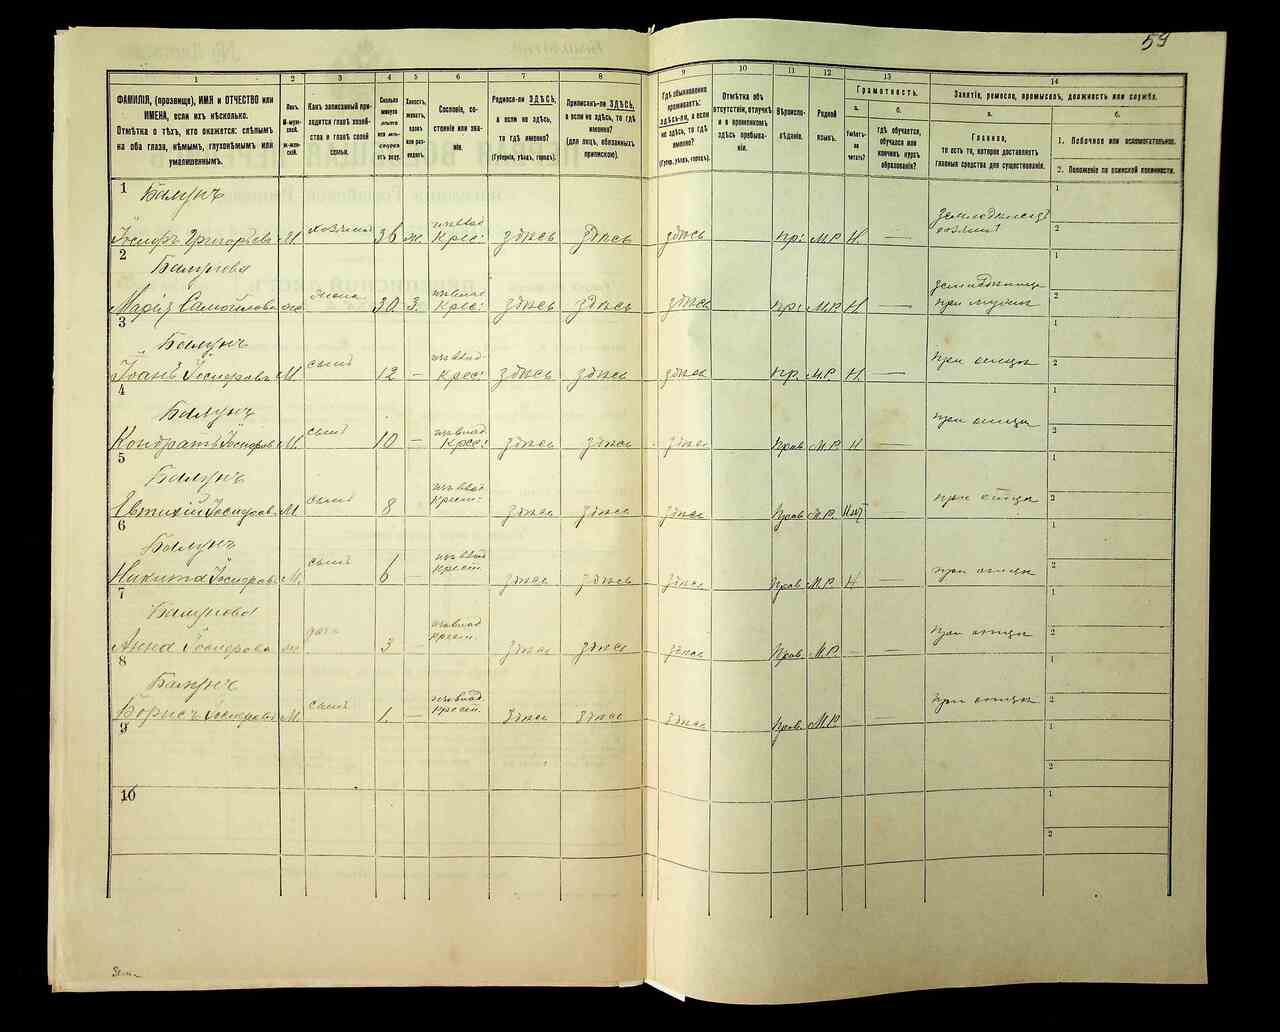 59
1 2 3 4 5 6 7 8 9 10 11 12 13 14
ФАМИЛІЯ, (прозвище), ИМЯ и ОТЧЕСТВО или
ИМЕНА, если ихъ нѣсколько.
Отмѣтка о тѣхъ, кто окажется: слѣпымъ
на оба глаза, нѣмымъ, глухонѣмымъ или
умалишеннымъ.
Полъ.
М-муж-
ской.
Ж-жен-
скій.
Какъ записанный при-
ходится главѣ хозяй-
ства и главѣ своей
семьи.
Сколько
минуло
лѣтъ
или мѣ-
сяцевъ
отъ роду.
Холостъ,
женатъ,
вдовъ
или раз-
веденъ.
Сословіе, со-
стояніе или зва-
ніе.
Родился-ли ЗДѢСЬ,
а если не здѣсь,
то гдѣ именно?
(Губернія, уѣздъ, городъ).
Приписанъ-ли ЗДѢСЬ,
а если не здѣсь, то гдѣ
именно?
(для лицъ, обязанныхъ
припискою).
Гдѣ обыкновенно
проживаетъ:
здѣсь-ли, а если
не здѣсь, то гдѣ
именно?
(Губер., уѣздъ, городъ).
Отмѣтка объ
отсутствіи, отлучкѣ
и о временномъ
здѣсь пребыва-
ніи.
Вѣроиспо-
вѣданіе.
Родной
языкъ.
Грамотность.
а.
Умѣетъ-
ли
читать?
б.
гдѣ обучается,
обучался или
кончилъ курсъ
образованія?
Занятіе, ремесло, промыселъ, должность или служба.
а.
Главное,
то есть то, которое доставляетъ
главныя средства для существованія.
б.
1. Побочное или вспомогательное.
2. Положеніе по воинской повинности.
1 Балунъ
Іосифъ Григорьевъ М. хозяинъ 36 ж. Крес: здѣсь здѣсь здѣсь пр: М.Р. Н. —
1
2
2 Балунова
Марія Самойлова жена 30 З. Крес: здѣсь здѣсь здѣсь пр: М.Р. Н. — при мужѣ
1
2
3 Балунъ
Іоанъ Іосифовъ М. сынъ 12 — Крес: здѣсь здѣсь здѣсь пр. М.Р. Н. — при отцѣ
1
2
4 Балунъ
Кондратъ Іосифов. М. сынъ 10 — Крес: здѣсь здѣсь здѣсь Прав. М.Р. Н — при отцѣ
1
2
5 Балунъ
Евтихій Іосифов. М. сынъ 8 Крест: здѣсь здѣсь здѣсь Прав. М.Р. при отцѣ
1
2
6 Балунъ
Никита Іосифов. М. сынъ 6 — Крест. здѣсь здѣсь здѣсь Прав. М.Р. Н — при отцѣ
1
2
7 Балунова
Анна Іосифова ж дочь 3 — крест. здѣсь здѣсь здѣсь Прав. М.Р. — — при отцѣ
1
2
8 Балунъ
Борисъ Іосифов М. сынъ 1. — крест. здѣсь здѣсь здѣсь Прав. М.Р. — при отцѣ
1
2
9
1
2
10
1
2